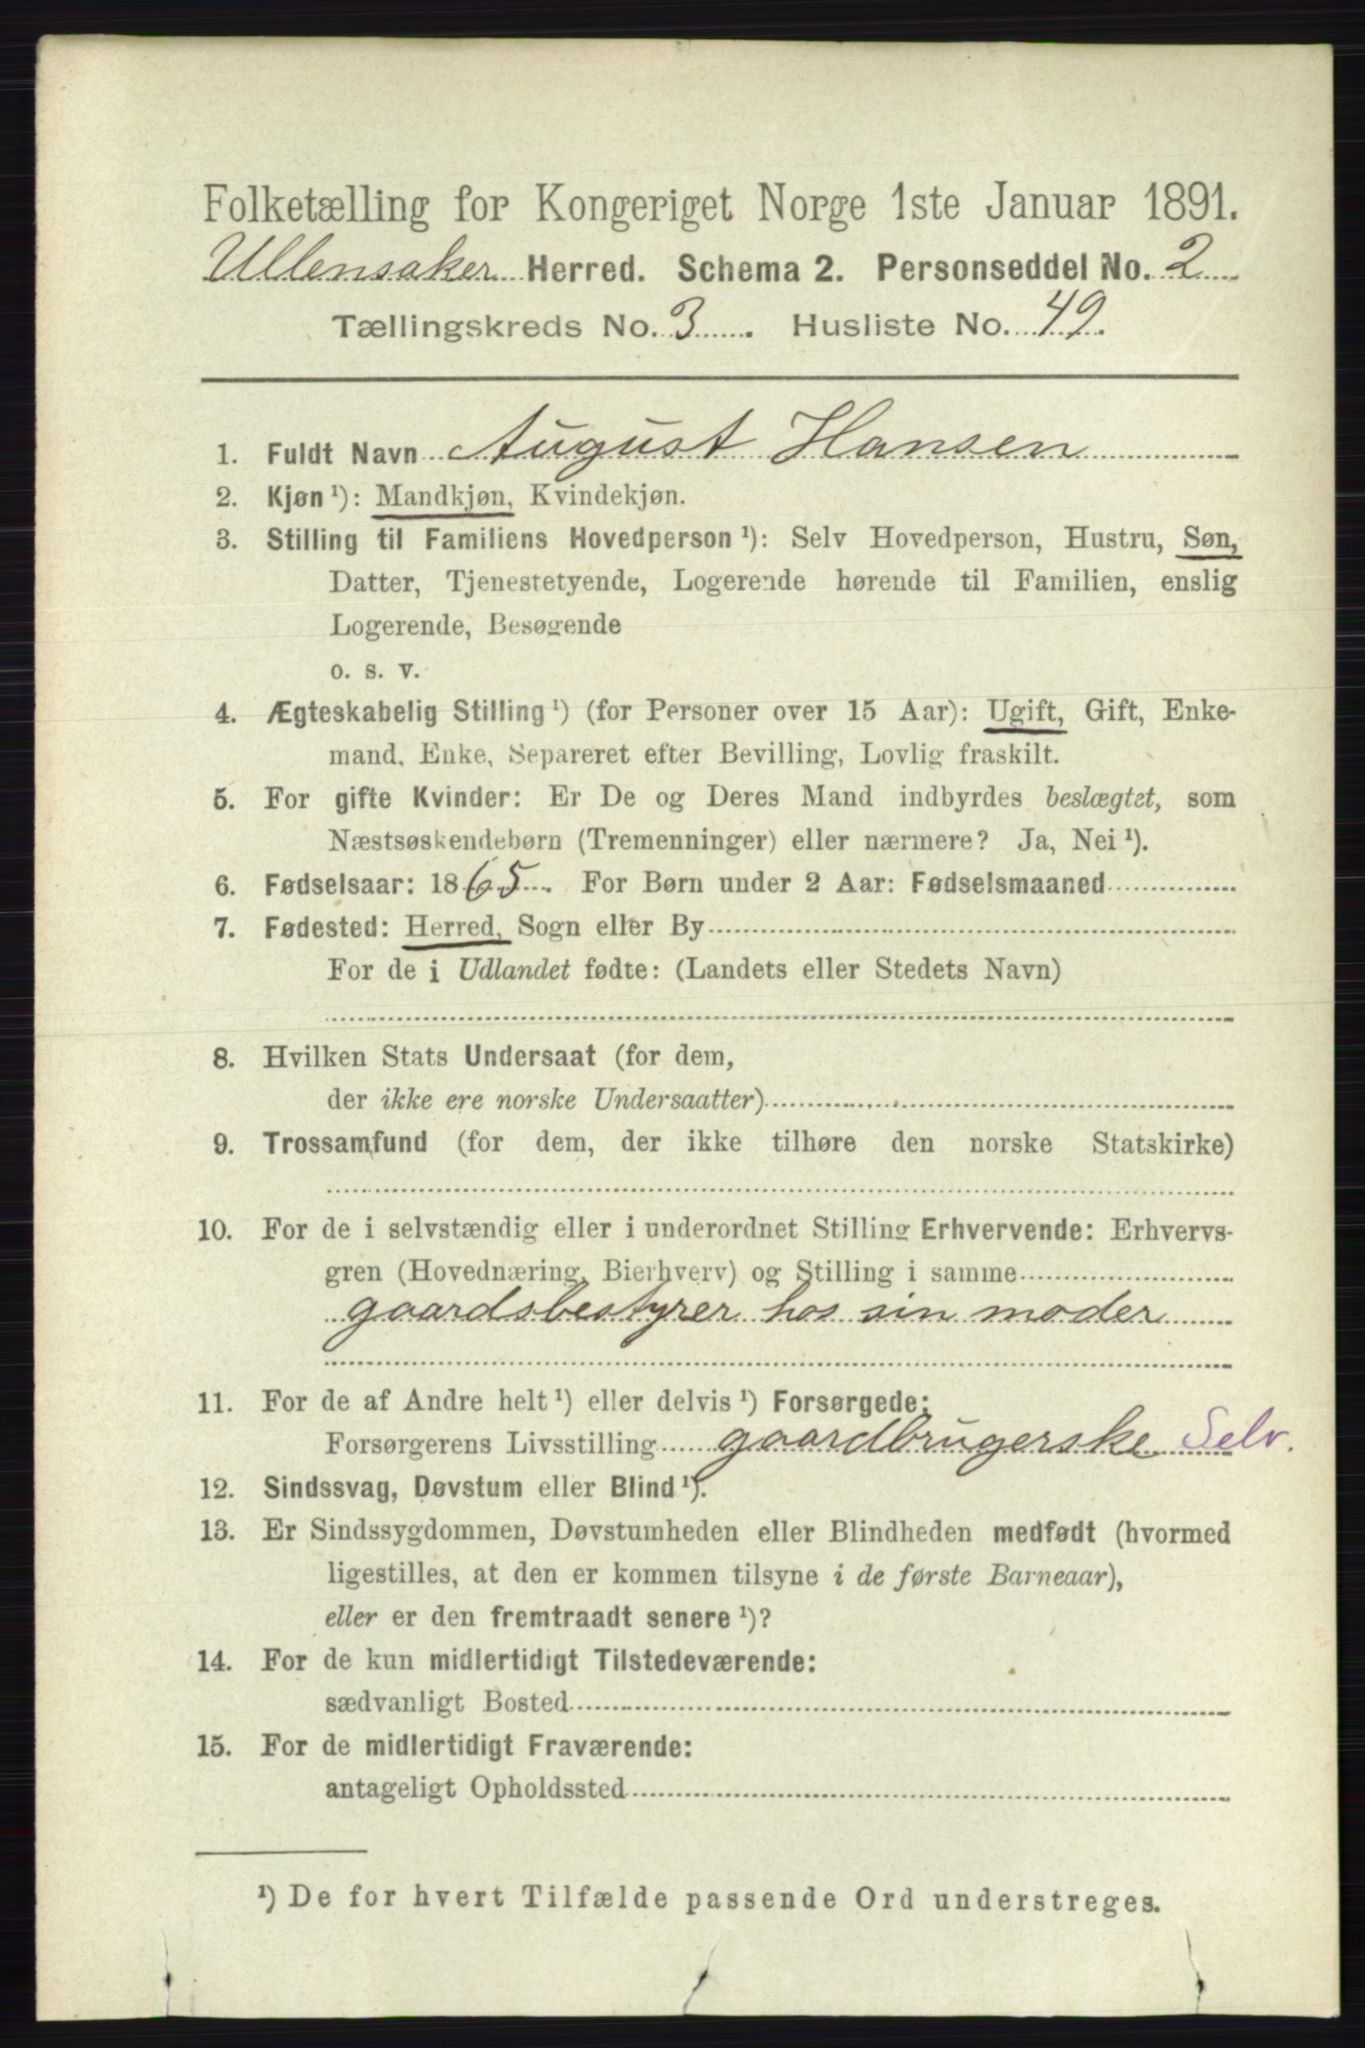 Folketælling for Kongeriget Norge 1ste Januar 1891.
Ullensaker Herred. Schema 2. Personseddel No. 2
Tællingskreds No. 3. Husliste No. 49.
1. Fuldt Navn August Hansen
2. Kjøn ¹): Mandkjøn, Kvindekjøn.
3. Stilling til Familiens Hovedperson ¹): Selv Hovedperson, Hustru, Søn,
Datter, Tjenestetyende, Logerende hørende til Familien, enslig
Logerende, Besøgende
o. s. v.
4. Ægteskabelig Stilling ¹) (for Personer over 15 Aar): Ugift, Gift, Enke-
mand, Enke, Separeret efter Bevilling, Lovlig fraskilt.
5. For gifte Kvinder: Er De og Deres Mand indbyrdes beslægtet, som
Næstsøskendebørn (Tremenninger) eller nærmere? Ja, Nei ¹).
6. Fødselsaar: 1865. For Børn under 2 Aar: Fødselsmaaned
7. Fødested: Herred, Sogn eller By
For de i Udlandet fødte: (Landets eller Stedets Navn)
8. Hvilken Stats Undersaat (for dem,
der ikke ere norske Undersaatter)
9. Trossamfund (for dem, der ikke tilhøre den norske Statskirke)
10. For de i selvstændig eller i underordnet Stilling Erhvervende: Erhvervs-
gren (Hovednæring, Bierhverv) og Stilling i samme
gaardsbestyrer hos sin moder
11. For de af Andre helt ¹) eller delvis ¹) Forsørgede:
Forsørgerens Livsstilling gaardbrugerske Selv.
12. Sindssvag, Døvstum eller Blind ¹).
13. Er Sindssygdommen, Døvstumheden eller Blindheden medfødt (hvormed
ligestilles, at den er kommen tilsyne i de første Barneaar),
eller er den fremtraadt senere ¹)?
14. For de kun midlertidigt Tilstedeværende:
sædvanligt Bosted
15. For de midlertidigt Fraværende:
antageligt Opholdssted
¹) De for hvert Tilfælde passende Ord understreges.